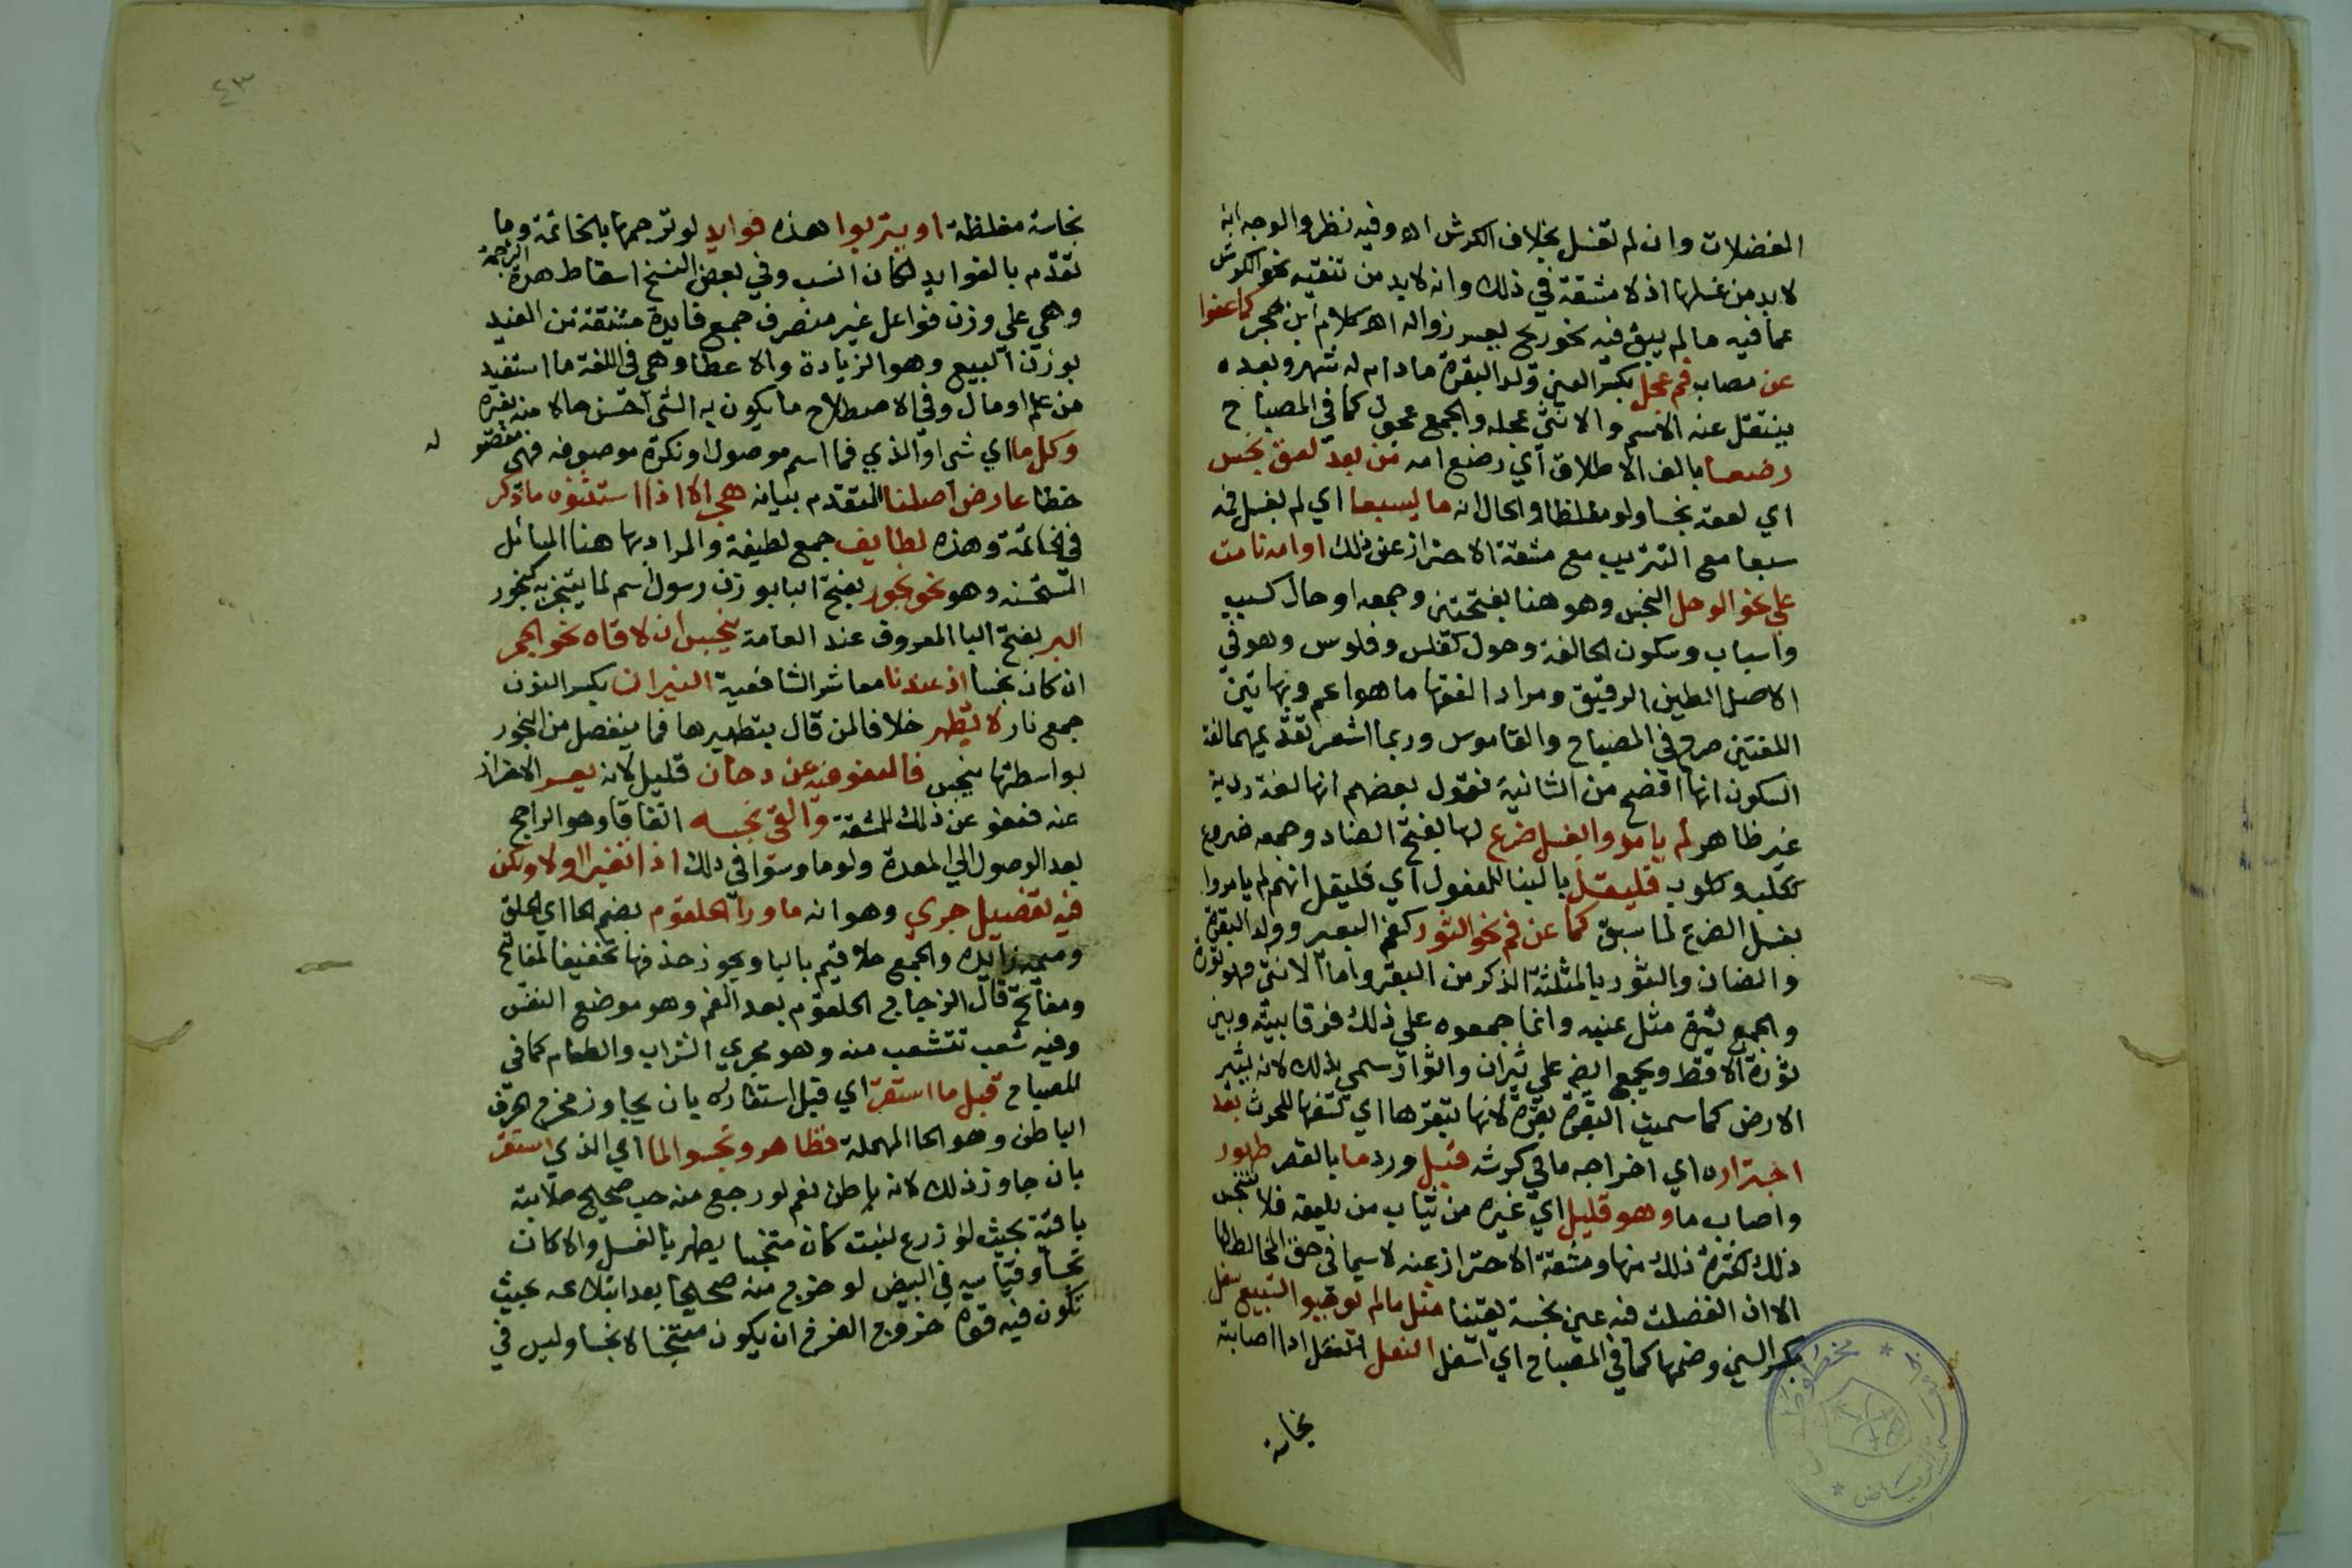 الفضلات وان لم تغسل بخلاف الكرش اه وفيه نظر والوجه انه
لابد من غسلها اذ لا مشقة في ذلك وانه لابد من تنقيه نحو الكرش
عما فيه ما لم يبق فيه نحو ريح يعسر زواله اهـ كلام ابن حجر كما عفوا
عن مصاب فم عجل بكسر العين ولد البقرة مادام له شهر وبعده
ينتقل عنه الاسم والانثى عجله والجمع عجول كما في المصباح
رضعا بالف الاطلاق اي رضع امه من بعد لعق نجس
اي لعقه نجسا ولو مغلظا والحال انه ما يسبعا اي لم يغسل فمه
سبعا مع التتريب مع مشقة الاحتراز عن ذلك او امه نامت
علي نحو الوحل النجس وهو هنا بفتحتين وجمعه اوحال كسبب
واسباب وسكون الحا لغة وحول كفلس وفلوس وهو في
الاصل الطين الرقيق ومراد الفقها ما هو اعم وبهاتين
اللغتين صرح في المصباح والقاموس وربما اشعر تقديمهما لغة
السكون انها افصح من الثانية فقول بعضهم انها لغة ردية
غير ظاهر لم يامروا بغسل ضرع لها بفتح الضاد وجمعه ضروع
ككلب وكلوب فليقل بالبنا للمفعول اي فليقل انهم لم يامروا
بغسل الضرع لما سبق كما عن فم نحو الثور كفم البعير وولد البقرة
والضان والثور بالمثلثة الذكر من البقر واما الانثى فهو ثورة
والجمع ثيرة مثل عنبه وانما جمعوه علي ذلك فرقا بينه وبين
ثورة الاقط ويجمع ايضا علي ثيران واثوار سمي بذلك لانه يثير
الارض كما سميت البقرة بقرة لانها تبقرها اي تشقها للحرث بعد
اجتراره اي اخراجه ما في كرشه قبل ورد ما بالقصر طهور
واصاب ما وهو قليل اي غيره من ثياب من يلعقه فلا ينجس
ذلك لكثرة ذلك منها ومشقة الاحتراز عنه لاسيما في حق المخالط لها
الا ان انفصلت فيه عين نجسة يقينا مثل ما لم يوجبوا التسبيع سفل
بكسر السين وضمها كما في المصباح اي اسفل النعل اذا اصابته
نجاسة
٤٣
نجاسة مغلظة او يتربوا هذه فوايد لو ترجمها بالخاتمة وما
تقدم بالفوايد لكان انسب وفي بعض النسخ اسقاط هذه الترجمة
وهي علي وزن فواعل غير منصرف جمع فايدة مشتقة من الفيد
بوزن البيع وهو الزيادة والاعطا وهي في اللغة ما استفيد
من علم او مال وفي الاصطلاح ما يكون به الشي احسن حالا منه بغيره
وكل ما اي شي او الذي فما اسم موصول او نكرة موصوفه فهي مقصو له
خطا عارض اصلنا المتقدم بيانه هجر الا اذا استثنوه ما ذكر
في الخاتمة وهذه لطايف جمع لطيفة والمراد بها هنا المسائل
المستحسنه وهو نحو بخور بفتح البا بوزن رسول اسم لما يتبخر به كبخور
البر بفتح البا المعروف عند العامة ينجس ان لاقاه نحو الجمر
ان كان نجسا اذ عندنا معاشر الشافعية النيران بكسر النون
جمع نار لا تطهر خلافا لمن قال بتطهيرها فما ينفصل من البخور
بواسطتها ينجس فالعفو فيه عن دخان قليل لانه يعسر الاحتراز
عنه فعفو عن ذلك للمشقة والقئ نجسه اتفاقا وهو الراجع
بعد الوصول الي المعدة ولو ما وسوا في ذلك اذا تغير او لا ولكن
فيه تفصيل جري وهو انه ما ورا الحلقوم بضم الحا اي الحلق
وميمه زايده والجمع حلاقيم باليا ويجوز حذفها تخفيفا لمفاتح
ومفاتيح قال الزجاج الحلقوم بعد الفم وهو موضع النفس
وفيه شعب تتشعب منه وهو مجري الشراب والطعام كما في
المصباح قبل ما استقر اي قبل استقراره بان يجاوز مخرج الحرف
الباطن وهو الحا المهملة فطاهر ونجسوا لما اي الذي استقر
بان جاوز ذلك لانه باطن نعم لو رجع منه حب صحيح صلابته
باقية بحيث لو زرع لنبت كان متنجسا يطهر بالغسل والا كان
نجسا وقياسه في البيض لو خرج منه صحيحا بعد ابتلاعه بحيث
تكون فيه قوة خروج الفرخ ان يكون متنجسا لا نجسا وليس في